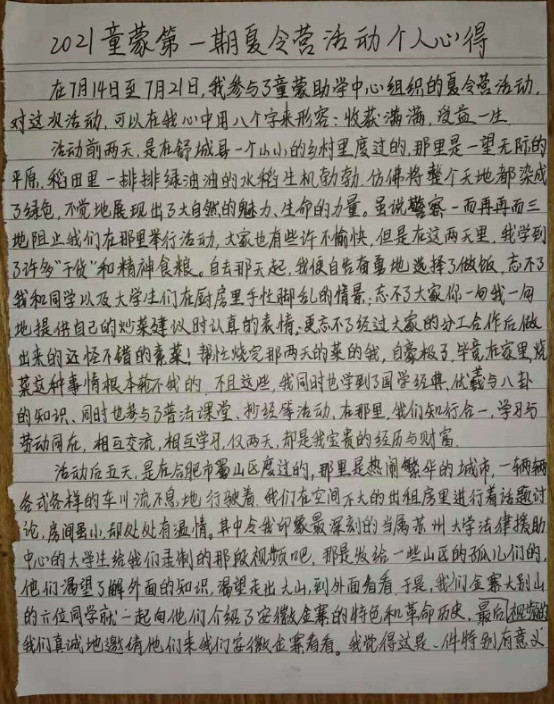 2021童蒙第一期夏令营活动个人心得
在7月14日至7月21日,我参与了童蒙助学中心组织的夏令营活动,
对这次活动,可以在我心中用八个字来形容:收获满满,受益一生.
活动前两天,是在舒城县一个小小的乡村里度过的,那里是一望无际的
平原,稻田里一排排绿油油的水稻生机勃勃.仿佛将整个天地都染成
了绿色,不觉地展现出了大自然的魅力、生命的力量。虽说警察一而再再而三
地阻止我们在那里举行活动,大家也有些许不愉快,但是在这两天里,我学到
了许多“干货”和精神食粮。自去那天起,我便自告奋勇地选择了做饭,忘不了
我和同学以及大学生们在厨房里手忙脚乱的情景;忘不了大家你一句我一句
地提供自己的炒菜建议时认真的表情,更忘不了经过大家的分工合作后做
出来的还怪不错的素菜!帮忙烧完那两天的菜的我,自豪极了,毕竟在家里,烧
菜这种事情根本轮不我的.不但这些,我同时也学到了国学经典,伏羲与八卦
的知识、同时也参与了普法课堂、抄经等活动.在那里,我们知行合一,学习与
劳动同在,相互交流,相互学习,仅两天,都是我宝贵的经历与财富.
活动后五天,是在合肥市蜀山区度过的,那里是热闹繁华的城市,一辆辆
各式各样的车川流不息地行驶着.我们在空间不大的出租房里进行着话题讨
论,房间虽小,却处处有温情。其中令我印象最深刻的当属苏州大学法律援助
中心的大学生给我们录制的那段视频吧,那是发给一些山区的孤儿们的,
他们渴望了解外面的知识,渴望走出大山,到外面看看.于是,我们金寨大别山
的六位同学就一起向他们介绍了安徽金寨的特色和革命历史,最后视频的
我们真诚地邀请他们来我们安徽金寨看看。我觉得这是一件特别有意义